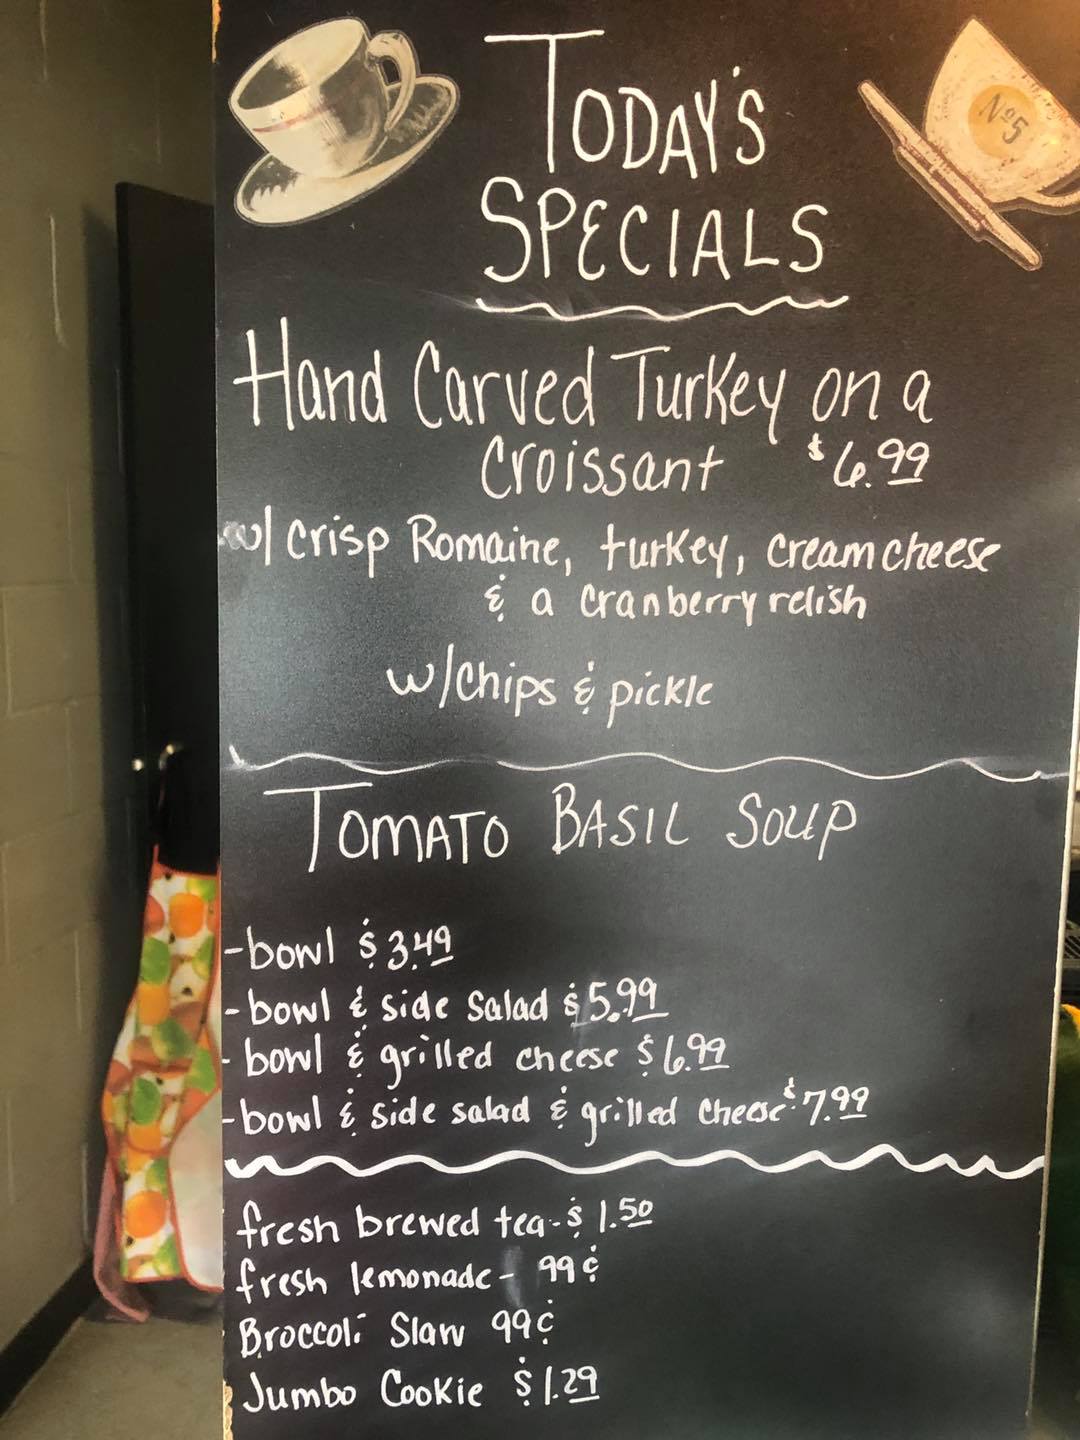 Nº5
TODAY'S
SPECIALS
Hand Carved Turkey on a
Croissant $6.99
w/ crisp Romaine, turkey, cream cheese
& a cranberry relish
w/chips & pickle
TOMATO BASIL SOUP
-bowl $3.49
-bowl & side salad $5.99
-bowl & grilled cheese $6.99
-bowl & side salad & grilled cheese $7.99
fresh brewed tea-$1.50
fresh lemonade- 99¢
Broccoli Slaw 99¢
Jumbo Cookie $1.29